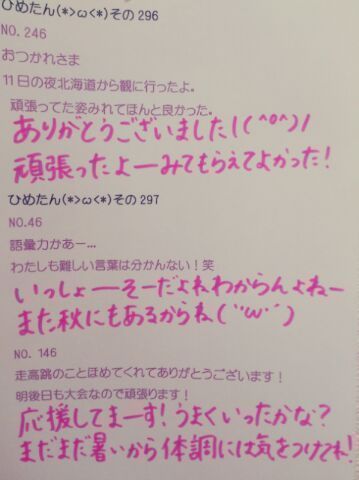 ひめたん(*>ω<*)その296
NO.246
おつかれさま
11日の夜北海道から観に行ったよ。
頑張ってた姿みれてほんと良かった。
ありがとうございました!(^o^)/
頑張ったよーみてもらえてよかった!
ひめたん(*>ω<*)その297
NO.46
語彙力かあー…
わたしも難しい言葉は分かんない！笑
いっしょーそーだよねわからんよねー
また秋にもあるからね(¨ω¨)
NO. 146
走高跳のことほめてくれてありがとうございます！
明後日も大会なので頑張ります！
応援してまーす!うまくいったかな?
まだまだ暑いから体調には気をつけてね!